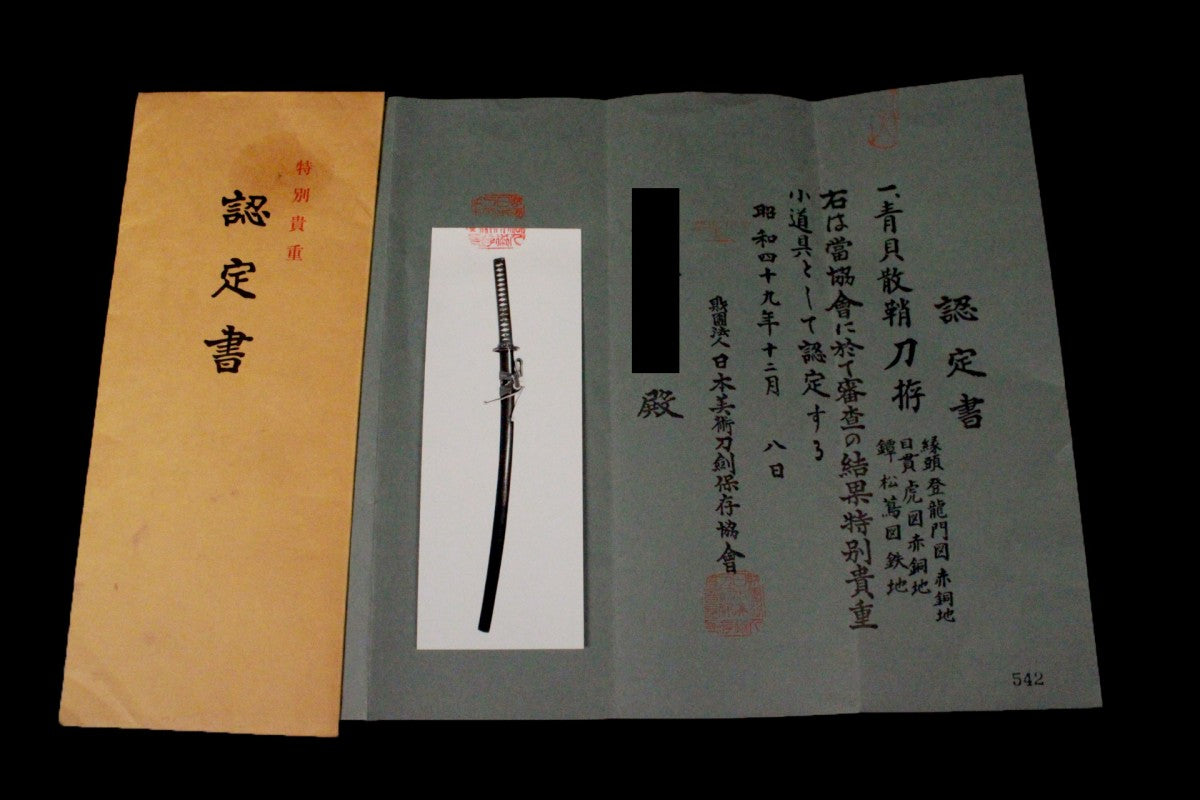 特別貴重
認定書
認定書
一、青貝散鞘刀拵
縁頭登龍門図赤銅地
目貫虎図赤銅地
鐔松蔦図鉄地
右は當協會に於て審査の結果特別貴重
小道具として認定する
昭和四十九年十二月八日
財團法人日本美術刀劍保存協會
殿
542